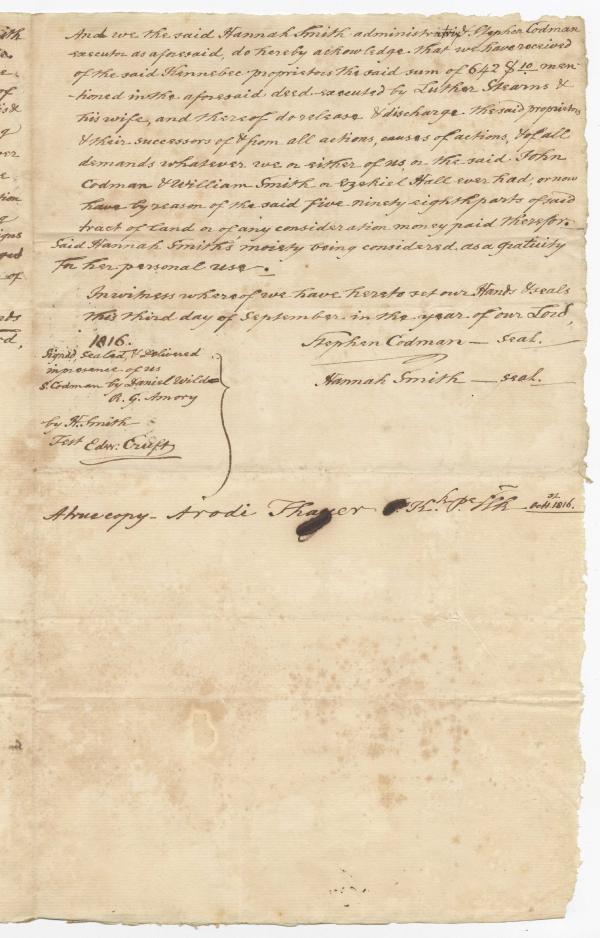 And we the said Hannah Smith administratrix & Stephen Codman
executor as aforesaid, do hereby acknowledge that we have received
of the said Kennebec proprietors the said sum of 642 $ 10 men-
-tioned in the aforesaid deed executed by Luther Stearns &
his wife, and thereof do release & discharge the said proprietors
& their successors of & from all actions, causes of actions, & of all
demands whatever we or either of us, or the said John
Codman & William Smith or Ezekiel Hall ever had, or now
have by reason of the said five ninety eighth parts of said
tract of land or of any consideration money paid therefor.
Said Hannah Smith's moiety being considered as a gratuity
for her personal use.
In witness whereof we have hereto set our Hands & seals
this third day of September in the year of our Lord,
1816.
Stephen Codman — seal.
Hannah Smith — seal.
Signed, sealed, & delivered
in presence of us
S. Codman by Daniel Wilde
R. G. Amory
by H. Smith
Test Edw: Cruft
A true copy - Arodi Thayer Octr. 1816.